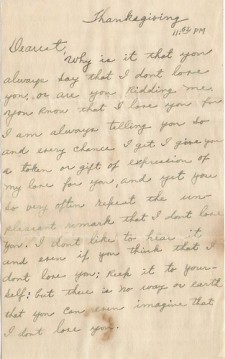 Thanksgiving
11:00 PM
Dearest,
Why is it that you
always say that I dont love
you, or are you Kidding me.
You know that I love you for
I am always telling you so
and every chance I get I give you
a token or gift of expression of
my love for you, and yet you
so very often repeat the un-
pleasant remark that I dont love
you. I dont like to hear it
and even if you think that I
dont love you; Keep it to your-
self: but there is no way on earth
that you can even imagine that
I dont love you.